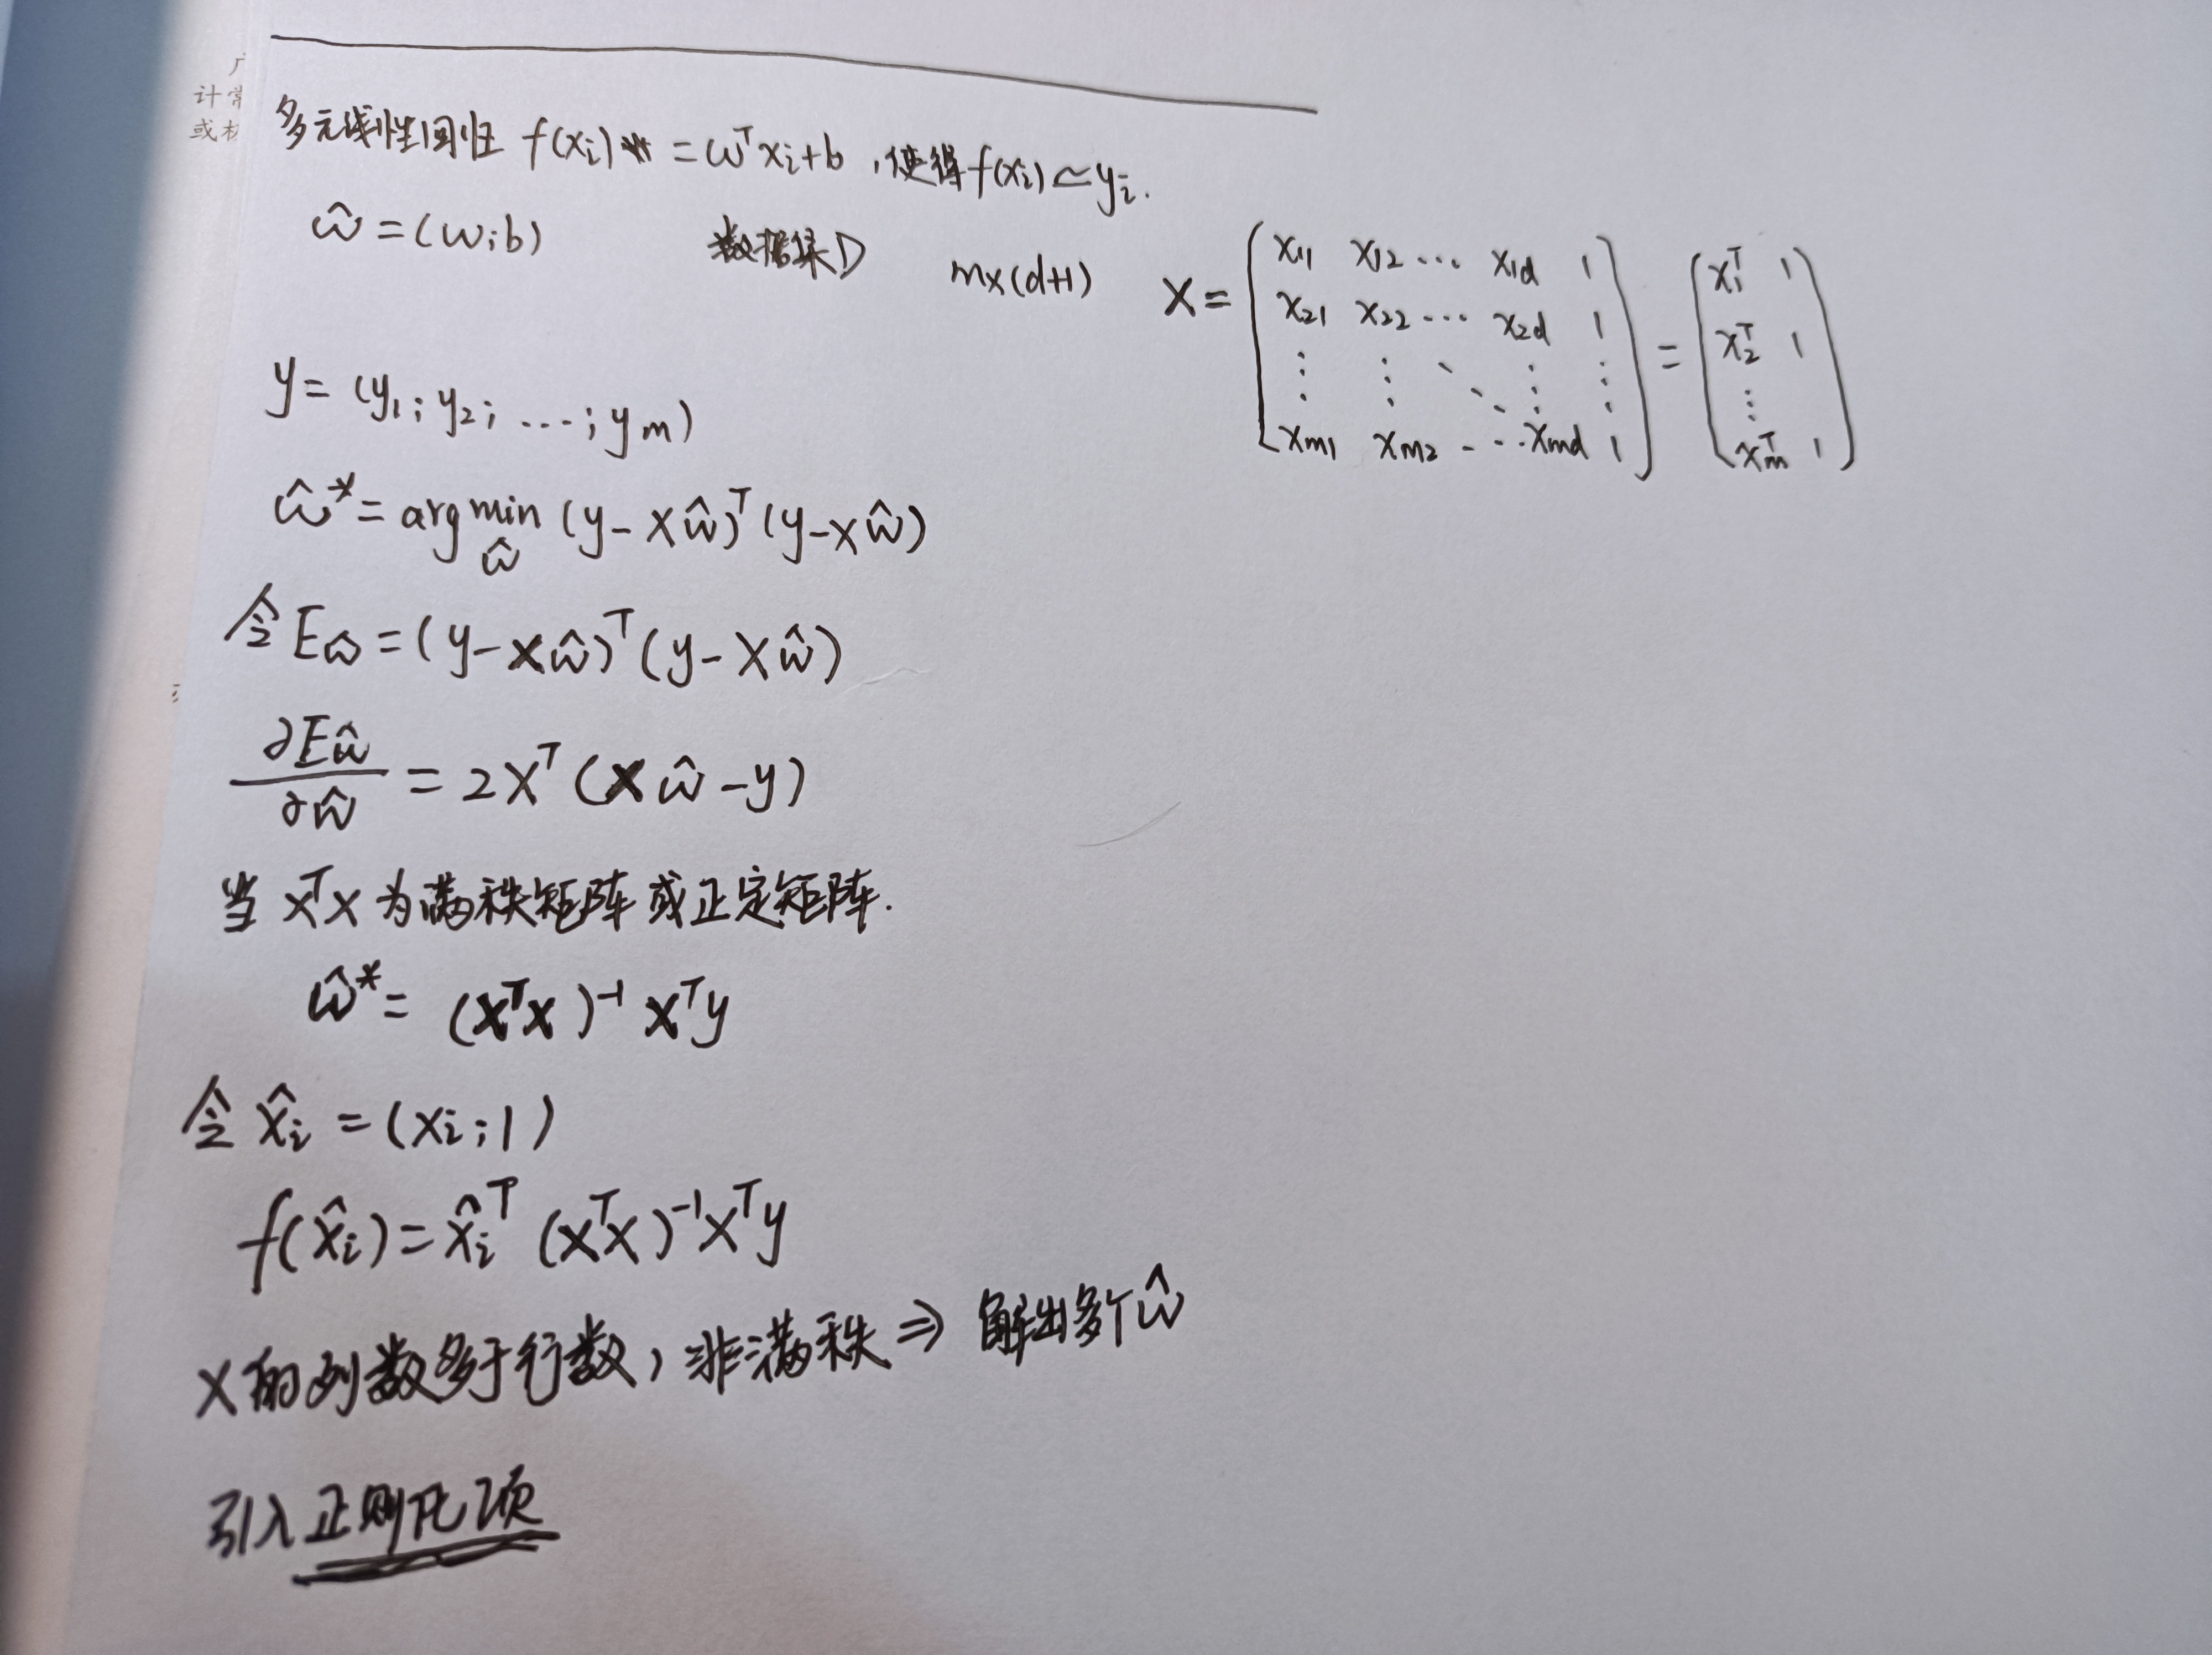 广
计常
或
多元线性回归 f(xᵢ) = ωᵀxᵢ+b，使得f(xᵢ)≃yᵢ.
ŵ=(w;b) 数据集D m×(d+1)
X = [x₁₁ x₁₂ ⋯ x₁d 1
x₂₁ x₂₂ ⋯ x₂d 1
⋮ ⋮ ⋱ ⋮ ⋮
xm₁ xm₂ ⋯ xmd 1] = (x₁ᵀ 1
x₂ᵀ 1
⋮
xmᵀ 1)
y=(y₁;y₂;…;ym)
ŵ*=arg min (y-Xŵ)ᵀ(y-Xŵ)
ŵ
令Eŵ=(y-Xŵ)ᵀ(y-Xŵ)
∂Eŵ/∂ŵ = 2Xᵀ(Xŵ-y)
当 XᵀX 为满秩矩阵或正定矩阵.
ŵ*= (XᵀX)⁻¹Xᵀy
令 x̂ᵢ=(xᵢ;1)
f(x̂ᵢ)=x̂ᵢᵀ(XᵀX)⁻¹Xᵀy
X的列数多于行数，非满秩⇒解出多个ŵ
引入正则化项